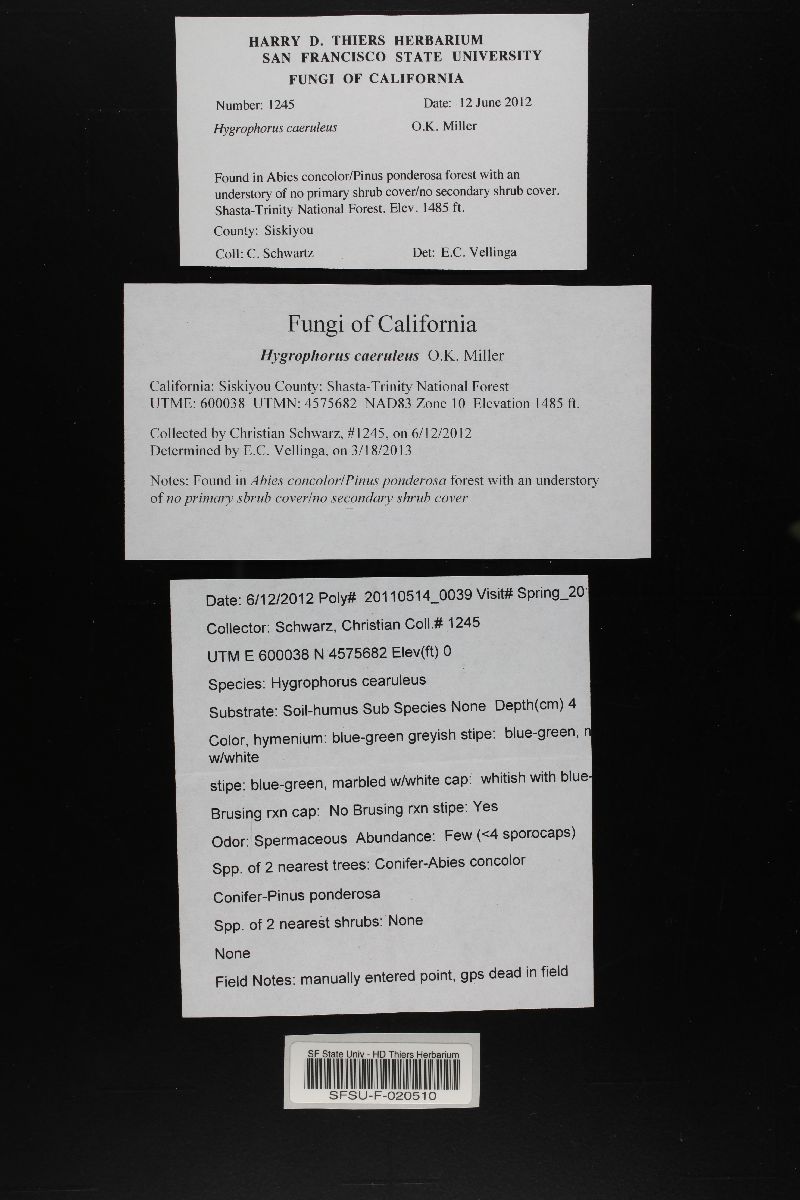 HARRY D. THIERS HERBARIUM
SAN FRANCISCO STATE UNIVERSITY
FUNGI OF CALIFORNIA
Number: 1245 Date: 12 June 2012
Hygrophorus caeruleus O.K. Miller
Found in Abies concolor/Pinus ponderosa forest with an
understory of no primary shrub cover/no secondary shrub cover.
Shasta-Trinity National Forest. Elev. 1485 ft.
County: Siskiyou
Coll: C. Schwartz Det: E.C. Vellinga
Fungi of California
Hygrophorus caeruleus O.K. Miller
California: Siskiyou County: Shasta-Trinity National Forest
UTME: 600038 UTMN: 4575682 NAD83 Zone 10 Elevation 1485 ft.
Collected by Christian Schwarz, #1245, on 6/12/2012
Determined by E.C. Vellinga, on 3/18/2013
Notes: Found in Abies concolor/Pinus ponderosa forest with an understory
of no primary sbrub cover/no secondary shrub cover
Date: 6/12/2012 Poly# 20110514_0039 Visit# Spring_20
Collector: Schwarz, Christian Coll.# 1245
UTM E 600038 N 4575682 Elev(ft) 0
Species: Hygrophorus cearuleus
Substrate: Soil-humus Sub Species None Depth(cm) 4
Color, hymenium: blue-green greyish stipe: blue-green,
w/white
stipe: blue-green, marbled w/white cap: whitish with blue-
Brusing rxn cap: No Brusing rxn stipe: Yes
Odor: Spermaceous Abundance: Few (<4 sporocaps)
Spp. of 2 nearest trees: Conifer-Abies concolor
Conifer-Pinus ponderosa
Spp. of 2 nearest shrubs: None
None
Field Notes: manually entered point, gps dead in field
SF State Univ - HD Thiers Herbarium
SFSU-F-020510